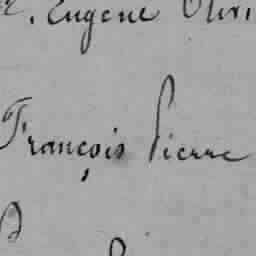 Eugene
François Pierre